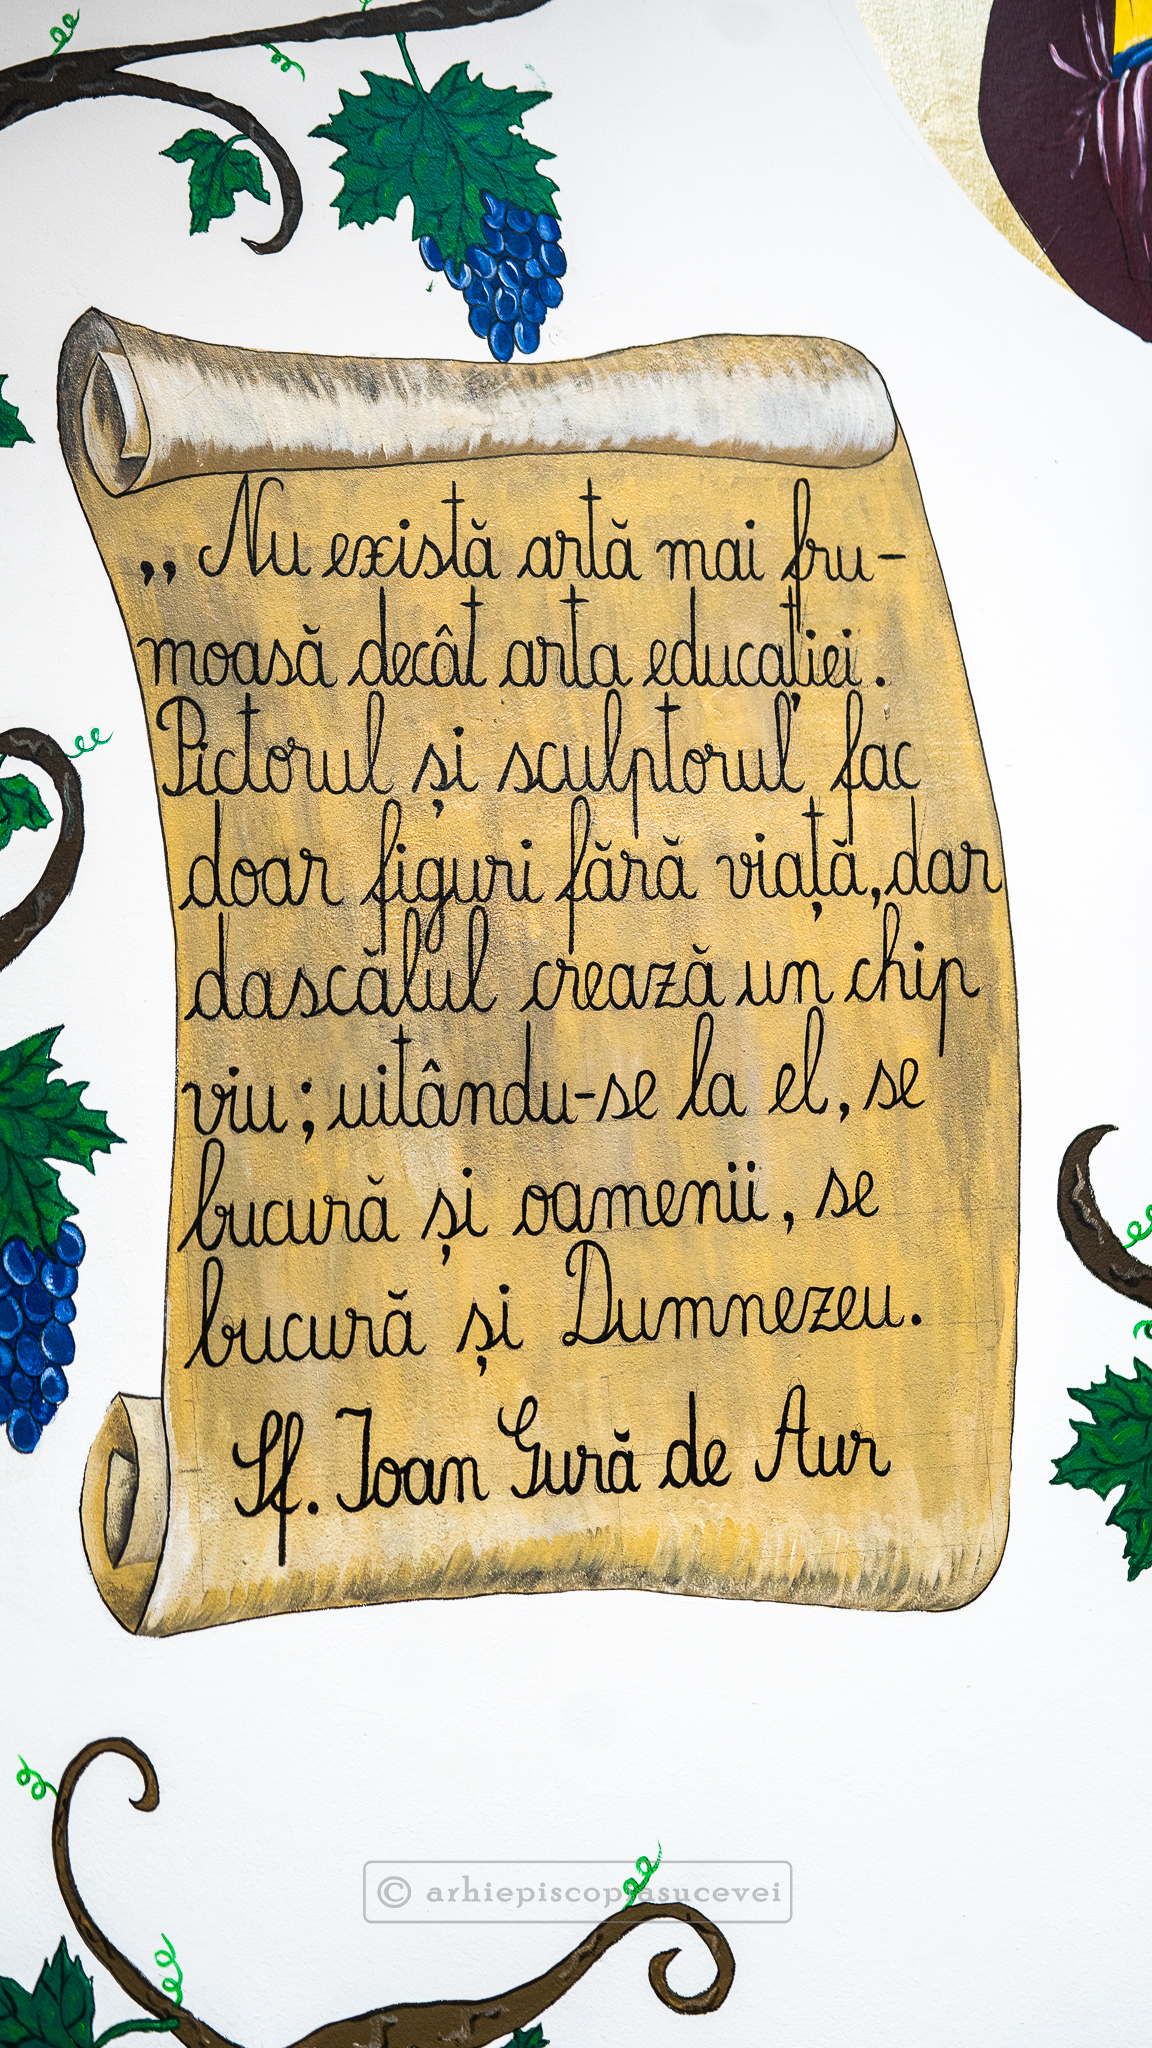 ,, Nu există artă mai fru-
moasă decât arta educației.
Pictorul și sculptorul fac
doar figuri fără viață, dar
dascălul crează un chip
viu; uitându-se la el, se
bucură și oamenii, se
bucură și Dumnezeu.
Sf. Ioan Gură de Aur
© arhiepiscopiasucevei